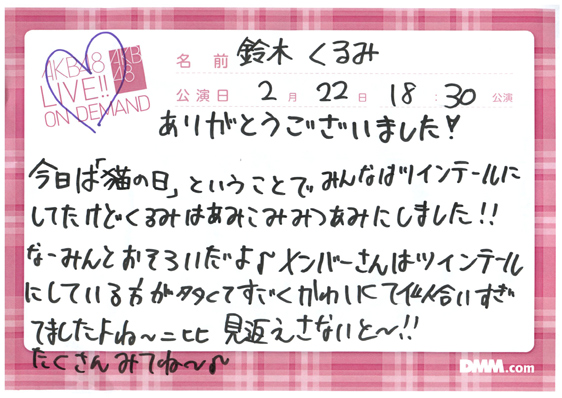 AKB48
LIVE!!
ON DEMAND
AKB
48
名前 鈴木 くるみ
公演日 2月22日 18:30 公演
ありがとうございました!
今日は「猫の日」ということでみんなはツインテールに
してたけどくるみはあみこみみつあみにしました!!
なーみんとおそろいだよ♪ メンバーさんはツインテール
にしている方が多くてすごくかわいくて似合いすぎ
てましたよね〜ニヒヒ 見返えさないと〜!!
たくさんみてね〜♪
DMM.com